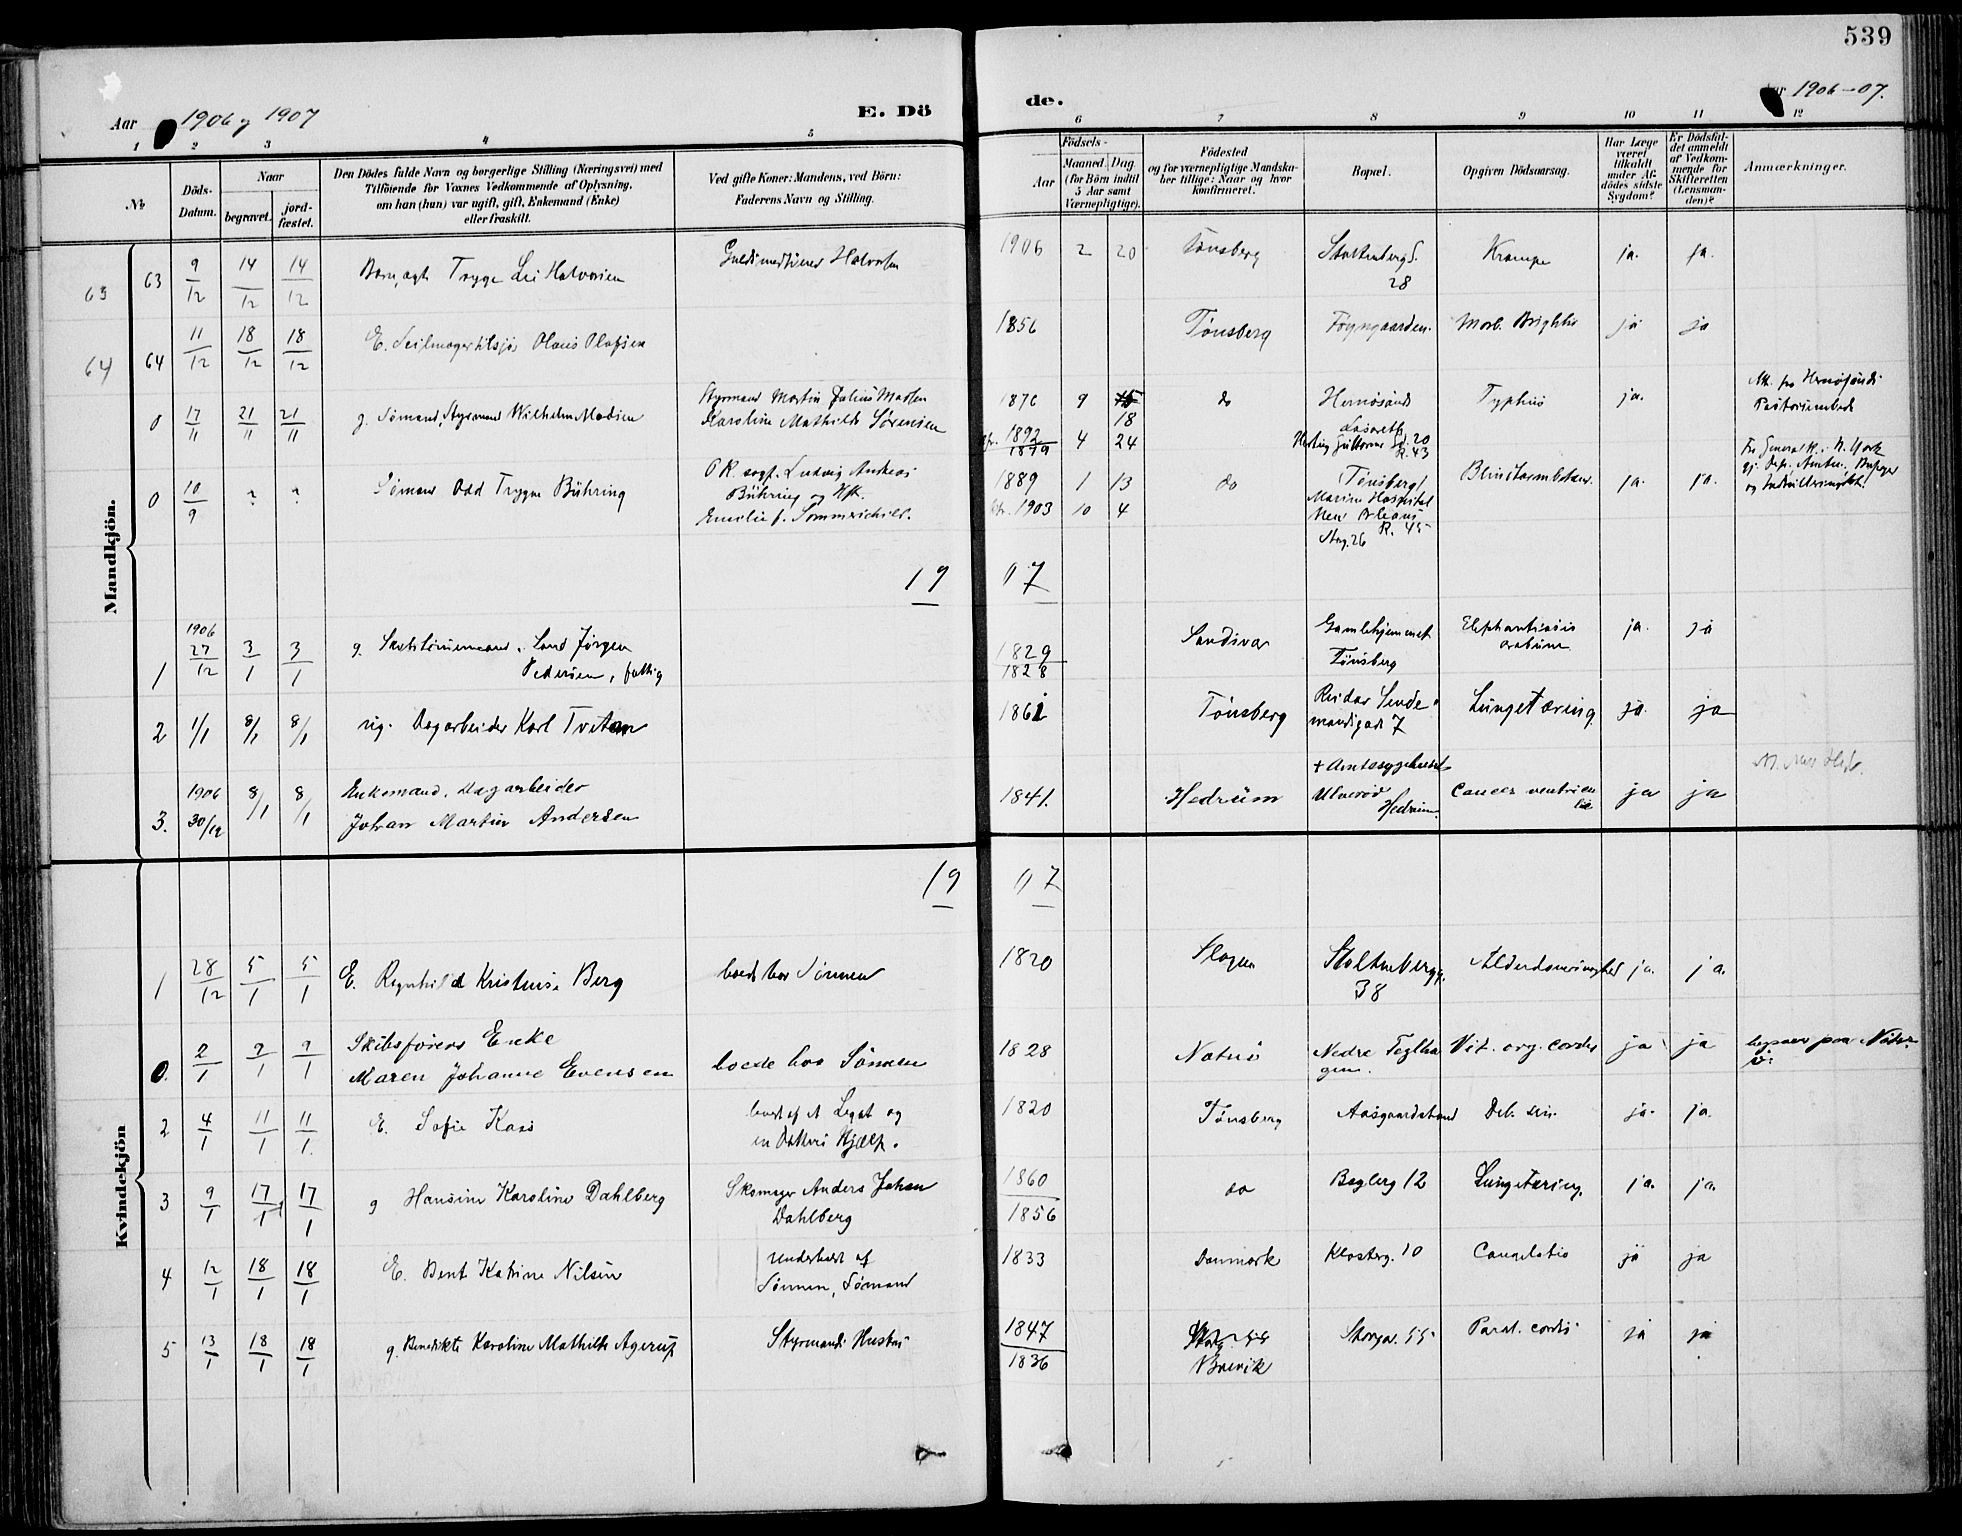 539
Aar 1906 og 1907
E. Dö
de.
Aar 1906-07.
1 2 3 4 5 6 7 8 9 10 11 12
No
Döds-
Datum.
Naar
begravet.
jord-
fæstet.
Den Dödes fulde Navn og borgerlige Stilling (Næringsvei) med
Tilföiende for Voxnes Vedkommende af Oplysning,
om han (hun) var ugift, gift, Enkemand (Enke)
eller fraskilt.
Ved gifte Koner: Mandens, ved Börn:
Faderens Navn og Stilling.
Födsels-
Aar
Maaned
Dag
(for Börn indtil
5 Aar samt
Værnepligtige).
Födested
og for værnepligtige Mandska-
ber tillige: Naar og hvor
konfirmeret.
Bopæl.
Opgiven Dödsaarsag.
Har Læge
været
tilkaldt
under Af-
dödes sidste
Sygdom?
Er Dödsfal-
det anmeldt
af Vedkom-
mende for
Skifteretten
(Lensman-
den)?
Anmærkninger.
Mandkjön.
63 63 9/12 14/12 14/12 Barn, ægt Trygve Lei Halvorsen Guldsmed Halvorsen 1906 2 20 Tønsberg Stoltenbergs. 28 Krampe ja. ja.
64 64 11/12 18/12 18/12 E. Seilmager Olaus Olafsen 1856 Tønsberg Foyngaarden. Morb. Brightii ja ja
0 17/11 21/11 21/11 g. Sømand, Styrmand Wilhelm Madsen Styrmand Martin Julius Madsen
Karoline Mathilde Sørensen 1870 9 18 do Hernøsands
Lasareth Typhus ja.
1892/1879 4 24 20
R. 43
0 10/9 ? ? Sømand Odd Trygve Bühring Ludvig Andreas
Bühring og Hst.
Emilie f. Sommerschield. 1889 1 13 do Tønsberg/
Marine Hospital
New Orleans
R. 45 Blindtarmbetænd. ja. ja.
1903 10 4
Fra Generalk. i N. York
19 07
1 1906 27/12 3/1 3/1 g. Lars Jørgen
Pedersen, fattig 1829/1828 Sandsvær Gamlehjemmet
Tønsberg Elephantiasis
arabum ja. ja
2 1/1 8/1 8/1 ug. Dagarbeider Karl Tveten 1861 Tønsberg Reidar Sende-
mandsgade 7 Lungetæring. ja. ja
3. 1906 30/12 8/1 8/1 Enkemand. Dagarbeider
Johan Martin Andersen 1841. Hedrum + Amtssygehuset
Ulverød
Hedrum. Cancer ventriculi ja ja
Kvindekjön
19 07
1 28/12 5/1 5/1 E. Ragnhild Kristense Berg boede hos Sønnen 1820 Slagen Stoltenbergg.
38 Alderdomssvaghed ja. ja.
0. 2/1 ?/1 ?/1 Skibsførers Enke
Maren Johanne Evensen boede hos Sønnen 1828 Nøterø Nedre Teglha
gen. Vit. org. cordis ja ja begraves paa Nøter-
ø:
2 4/1 11/1 11/1. E. Sofie Kass levet af et Legat og
en Datters Hjælp. 1820 Tønsberg Aasgaardstrand Deb. sen. ja. ja.
3 9/1 17/1 17/1 g Hansine Karoline Dahlberg Skomager Anders Johan
Dahlberg 1860/1856 do Baglerg 12 Lungetæring. ja. ja.
4 12/1 18/1 18/1 E. Bent Katrine Nilsen Underholdt af
Sønnen, Sømand 1833 Danmark Klosterg. 10 Congelatio ja ja
5 13/1 18/1 18/1 g. Benedikte Karoline Mathilde Agerup Styrmands Hustru 1847/1836 Brevik Storga. 55 Paral. cordis ja ja